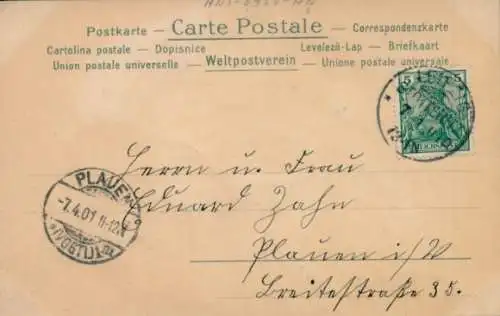 Postkarte — Carte Postale — Correspondenzkarte
Cartolina postale — Dopisnice Levelezö-Lap — Briefkaart
Union postale universelle — Weltpostverein — Unione postale universale
5 5
PLAUEN
-7.4.01 11-12N
(VOGTL)
Herrn u. Frau
Eduard Zahn
Plauen i/V
Breitestraße 35.